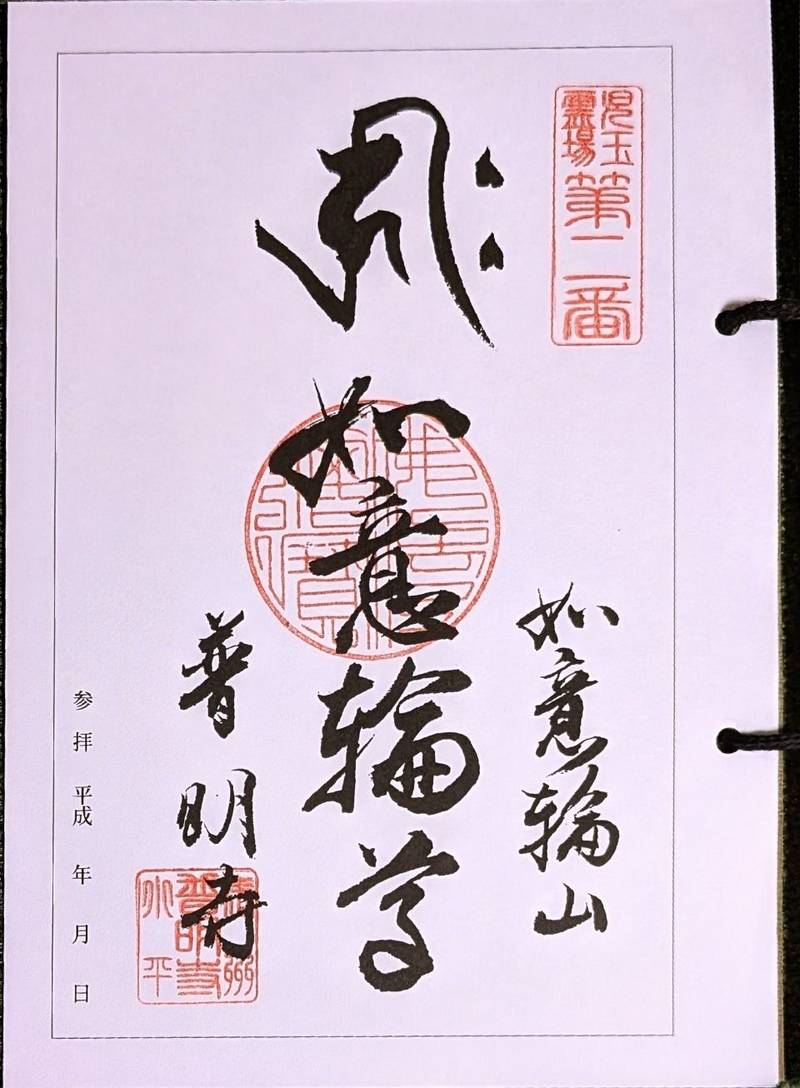 児玉
霊場
第二番
𑖮𑖿𑖨𑖱𑖾
如意輪尊
如意輪山
普明寺
普明寺
小平
参拝 平成 年 月 日